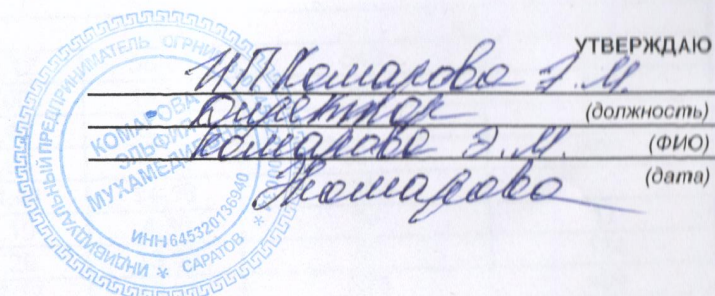 УТВЕРЖДАЮ
ИП Комарова Э.М.
директор
(должность)
Комарова Э.М.
(ФИО)
(дата)
Комарова
ИНДИВИДУАЛЬНЫЙ ПРЕДПРИНИМАТЕЛЬ ОГРНИП
КОМАРОВА
ЭЛЬФИЯ
МУХАМЕДИЕВНА
ИНН 645320136940
* САРАТОВ *